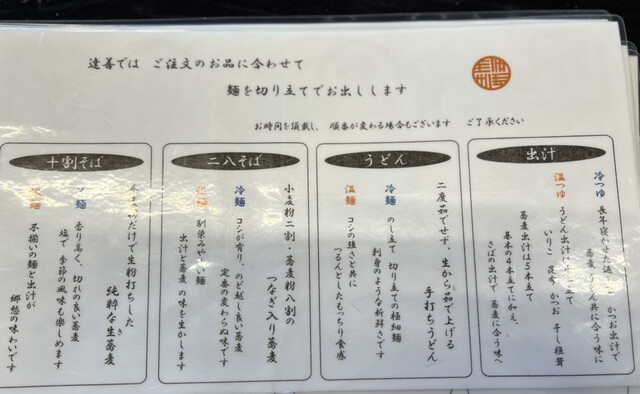 達善では ご注文のお品に合わせて
麺を切り立てでお出しします
お時間を頂戴し、順番が変わる場合もございます ご了承ください
出汁
冷つゆ 長年寝かせた返 かつお出汁で
蕎麦 どん共に合う味に
温つゆ うどん出汁は 立て
いりこ 昆布 かつお 干し椎茸
蕎麦出汁は5本立て
基本の4本立てに加え、
さばの出汁で、蕎麦に合う味へ
うどん
二度茹でせず、生から茹で上げる
手打ちうどん
冷麺 のし立て 切り立ての極細麺
刺身のような新鮮さです
温麺 コシの強さと共に
つるんとしたもっちり食感
二八そば
小麦粉二割・蕎麦粉八割の
つなぎ入り蕎麦
冷麺 コシが有り、のど越し良い蕎麦
定番の変わらぬ味です
馴染みやすい麺
出汁と蕎麦の味を生かします
十割そば
だけで生粉打ちした
純粋な生蕎麦
き
麺 香り高く、切れの良い蕎麦
塩で 季節の風味も楽しめます
麺 不揃いの麺と出汁が
郷愁の味わいです